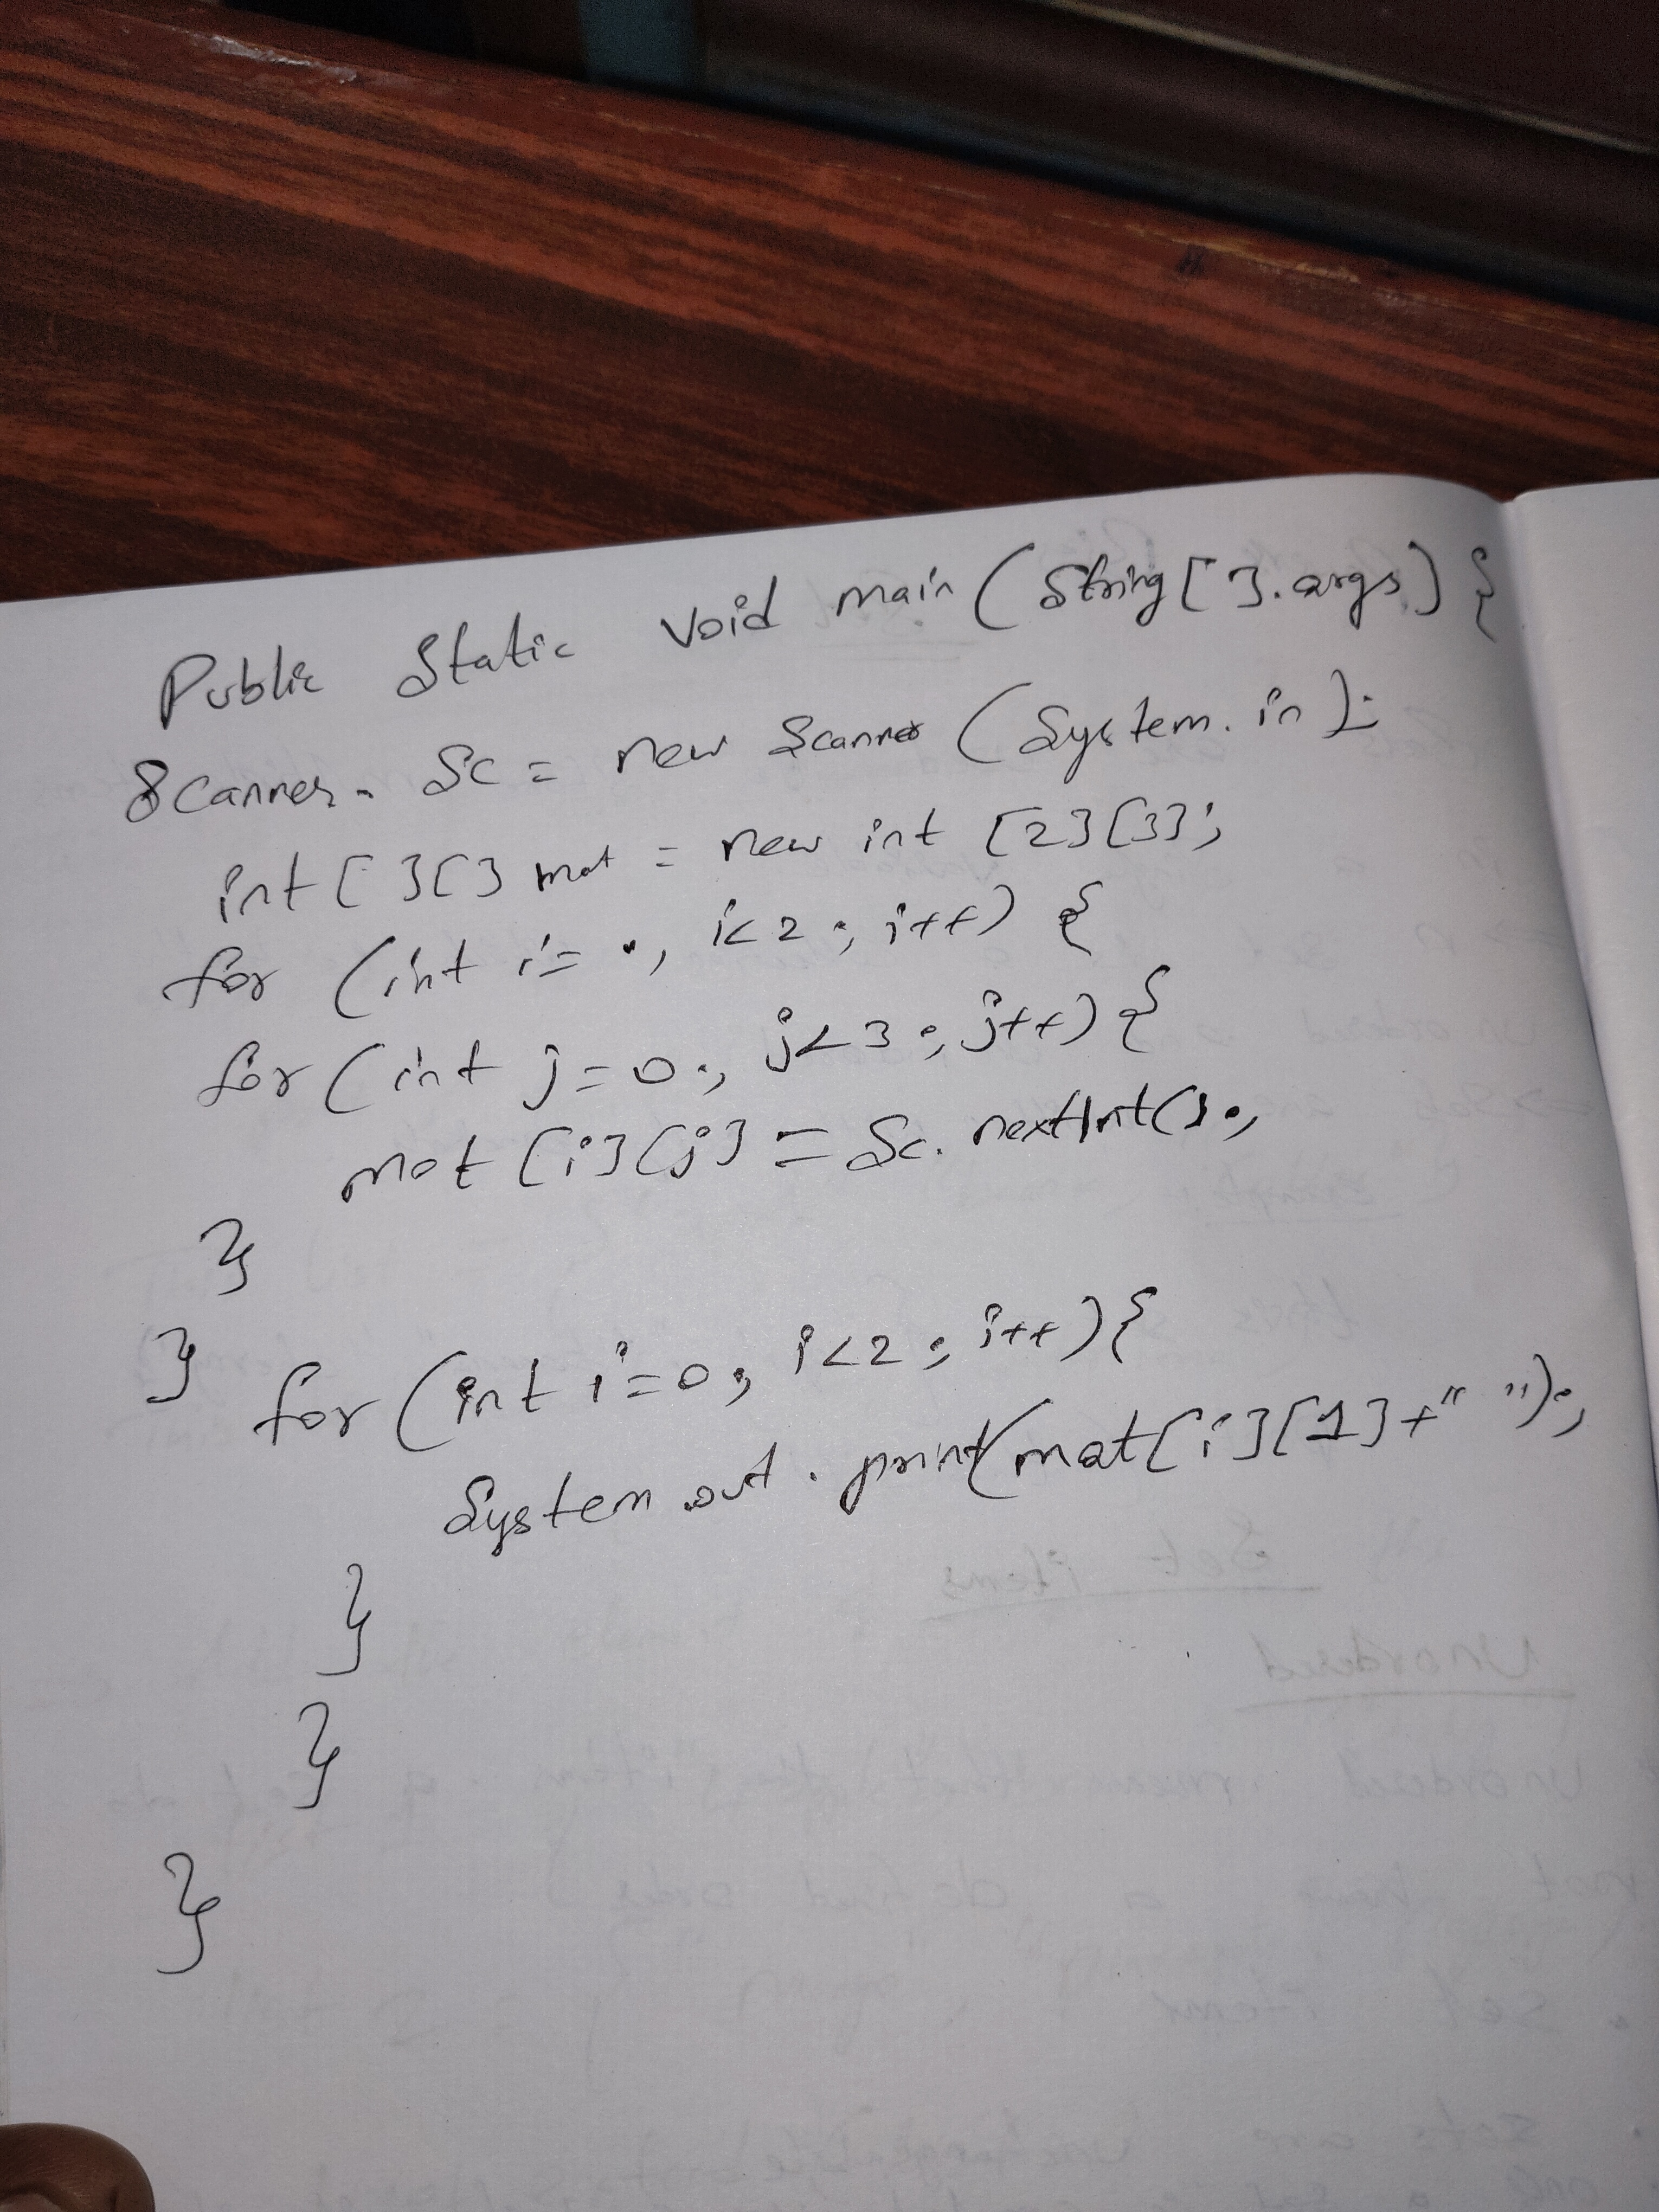 Public Static Void main (String[].args) {
Scanner. Sc = new Scanner (System.in);
int [][] mat = new int [2][3];
for (int i= 0; i<2; i++) {
for (int j=0; j<3; j++) {
mat [i][j] = Sc. nextInt();
}
}
for (int i=0; i<2; i++) {
System.out.print(mat[i][1]+" ");
}
}
}